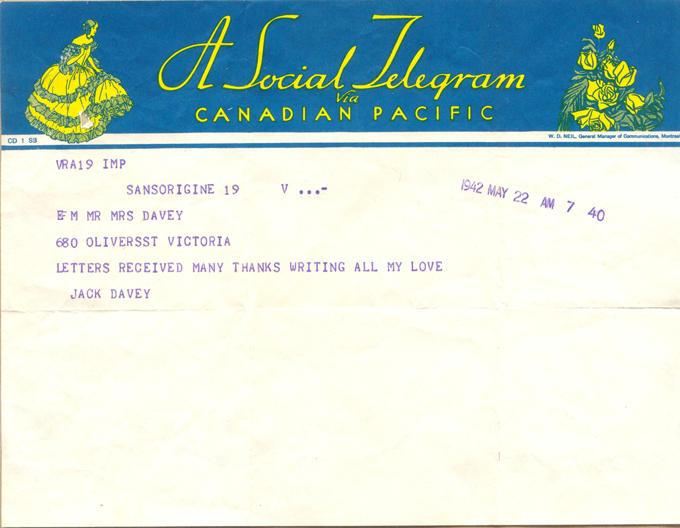 A Social Telegram
Via
CANADIAN PACIFIC
CD 1 SB
W. D. NEIL, General Manager of Communications, Montreal
VRA19 IMP
SANSORIGINE 19 V ...-
1942 MAY 22 AM 7 40
EFM MR MRS DAVEY
680 OLIVERSST VICTORIA
LETTERS RECEIVED MANY THANKS WRITING ALL MY LOVE
JACK DAVEY